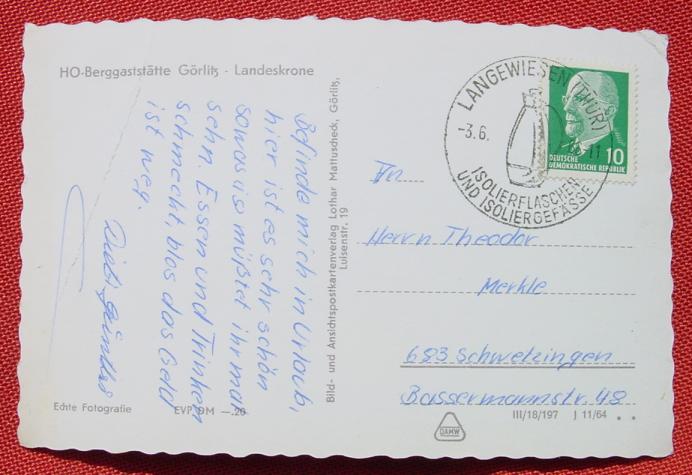 HO-Berggaststätte Görlitz - Landeskrone
Befinde mich in Urlaub,
hier ist es sehr schön
sowas müßtet ihr mal
sehn. Essen und Trinken
schmeckt, blos das Geld
ist weg.
Bild- und Ansichtspostkartenverlag Lothar Mattuscheck, Görlitz,
Luisenstr. 19
LANGEWIESEN (THÜR)
-3.6.
11
ISOLIERFLASCHEN
UND ISOLIERGEFÄSSE
DEUTSCHE
DEMOKRATISCHE REPUBLIK
10
An
Herrn Theodor
Merkle
683 Schwetzingen
Bassermannstr. 48
Echte Fotografie
EVP DM -.20
DAMW
III/18/197 J 11/64